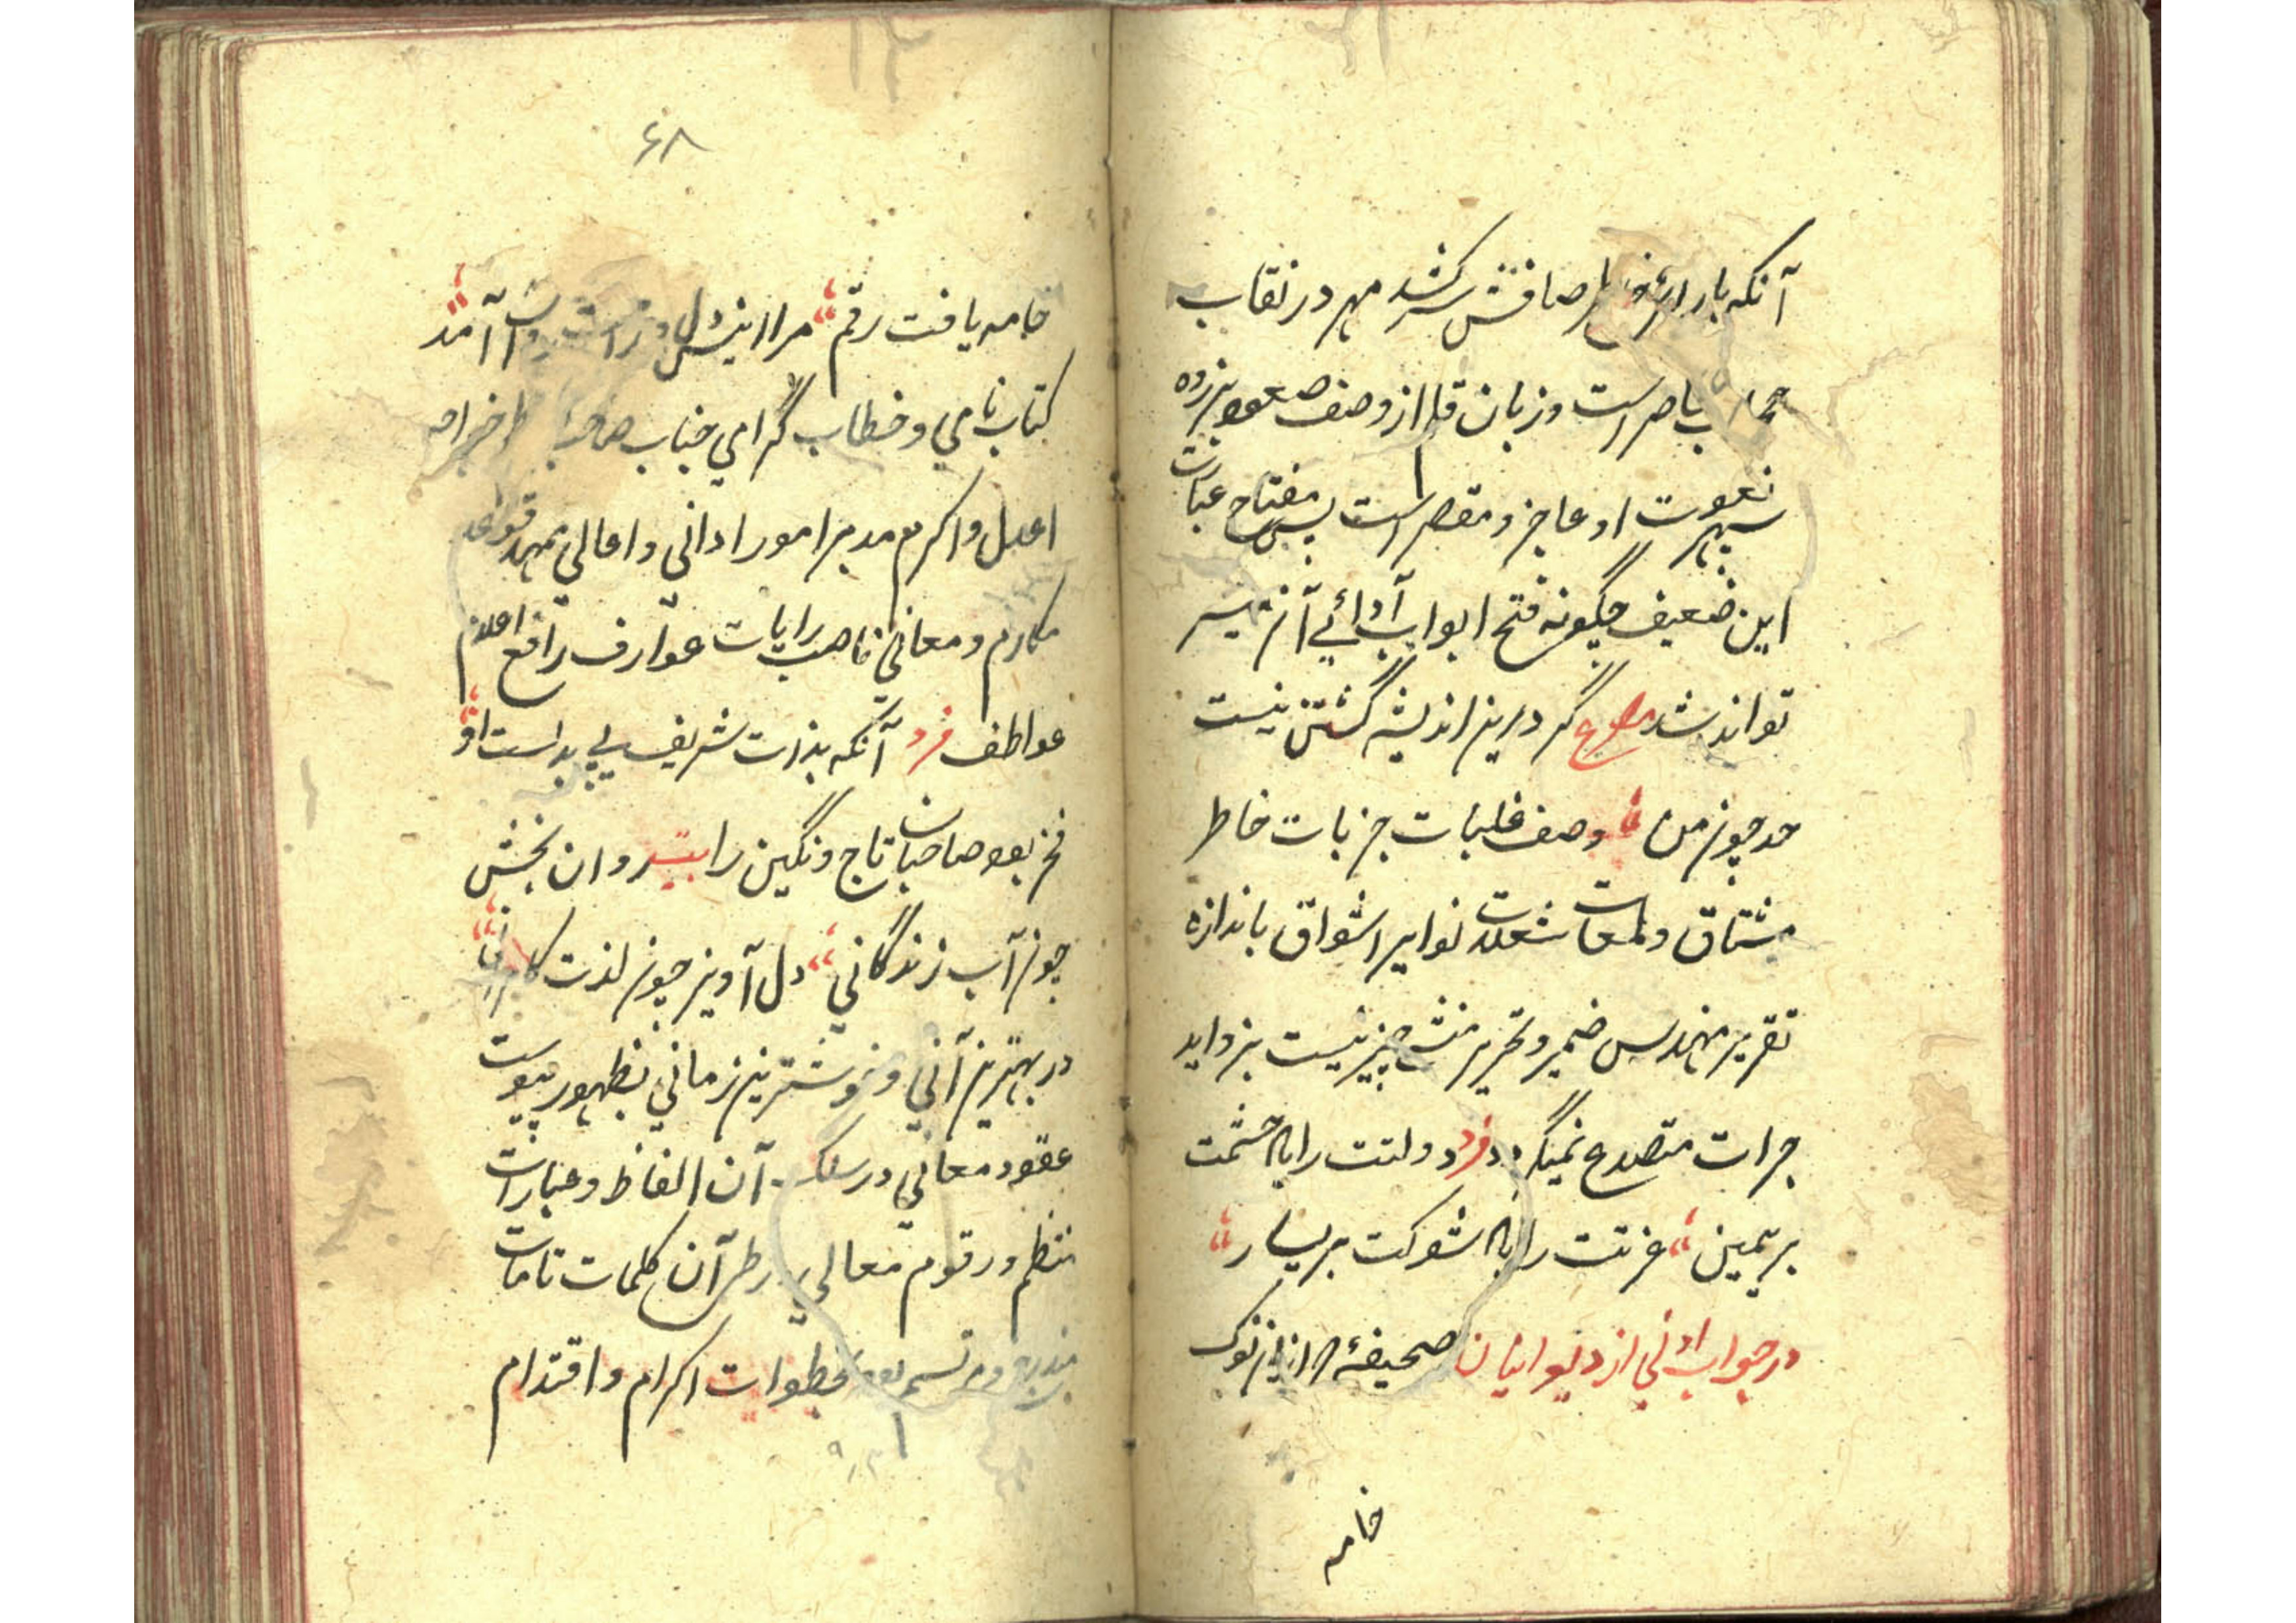 آنکه با رای صافش کشد مهر در نقاب
باصر است و زبان قلم از وصف صعود بر زده
سپهر نعوت او عاجز و مقصر است پس مفتاح عبارت
این ضعیف چگونه فتح ابواب آدائی آن میسر
تواند شد مصرع گر درین اندیشه گشتن نیست
حد چون من وصف غلبات جزبات خاطر
مشتاق و لمعات شعلات نوایر اشواق باندازه
تقریر مهندس ضمیر و تحریر منشی چیز نیست بزواید
جرات متصدع نمیگردد فرد دولتت رایه حشمت
بر یمین عزتت رایه شوکت بر یسار
در جواب ادانی از دیوانیان صحیفهٔ از نوک
خامه
۶۸
خامه یافت رقم مرا انیس دل و راحت روان آمد
کتاب نامی و خطاب گرامی جناب صاحب
اعدل و اکرم مدبر امور ادانی و اعالی ممهد قواعد
مکارم و معانی ناصب رایات عوارف رافع اعلام
عواطف فرد آنکه بذات شریف بی بدلست او
فخر بود صاحبان تاج و نگین را بیت روان بخش
چون آب زندگانی دل آویز چون لذت کامرانی
در بهترین آنی و خوشترین زمانی بظهور پیوست
عقود معانی در سلک آن الفاظ و عبارات
منتظم و رقوم معالی بر طی آن کلمات تامات
مندرج و مرتسم بود بخطوات اکرام و اقتدام